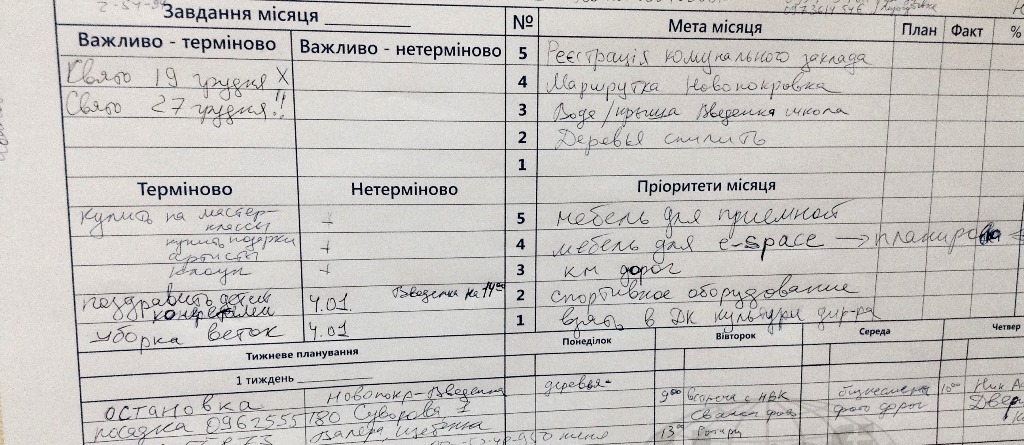 Завдання місяця
№ Мета місяця План Факт %
Важливо - терміново Важливо - нетерміново
5 Реєстрація комунального заклада
Свято 19 грудня X
4 Маршрутка Новопокровка
Свято 27 грудня!!
3 Вода/крыша Введенка школа
2 Деревья спилить
1
Терміново Нетерміново Пріоритети місяця
Купить на мастер-классы +
5 мебель для приемной
купить подарки +
артисты
4 мебель для e-space → планировка
клоун +
3 км дорог
поздравить детей конфетами 4.01 Введенка на 14⁰⁰
2 спортивное оборудование
уборка веток 4.01
1 взять в ДК культуры дир-ра
Тижневе планування Понеділок Вівторок Середа Четвер
1 тиждень
остановка Новопокр-Введенка деревья- 9⁰⁰ с НВК 10⁰⁰
посадка 0962555180 Суворова 1 фото дорог Двер
Валера 13⁰⁰